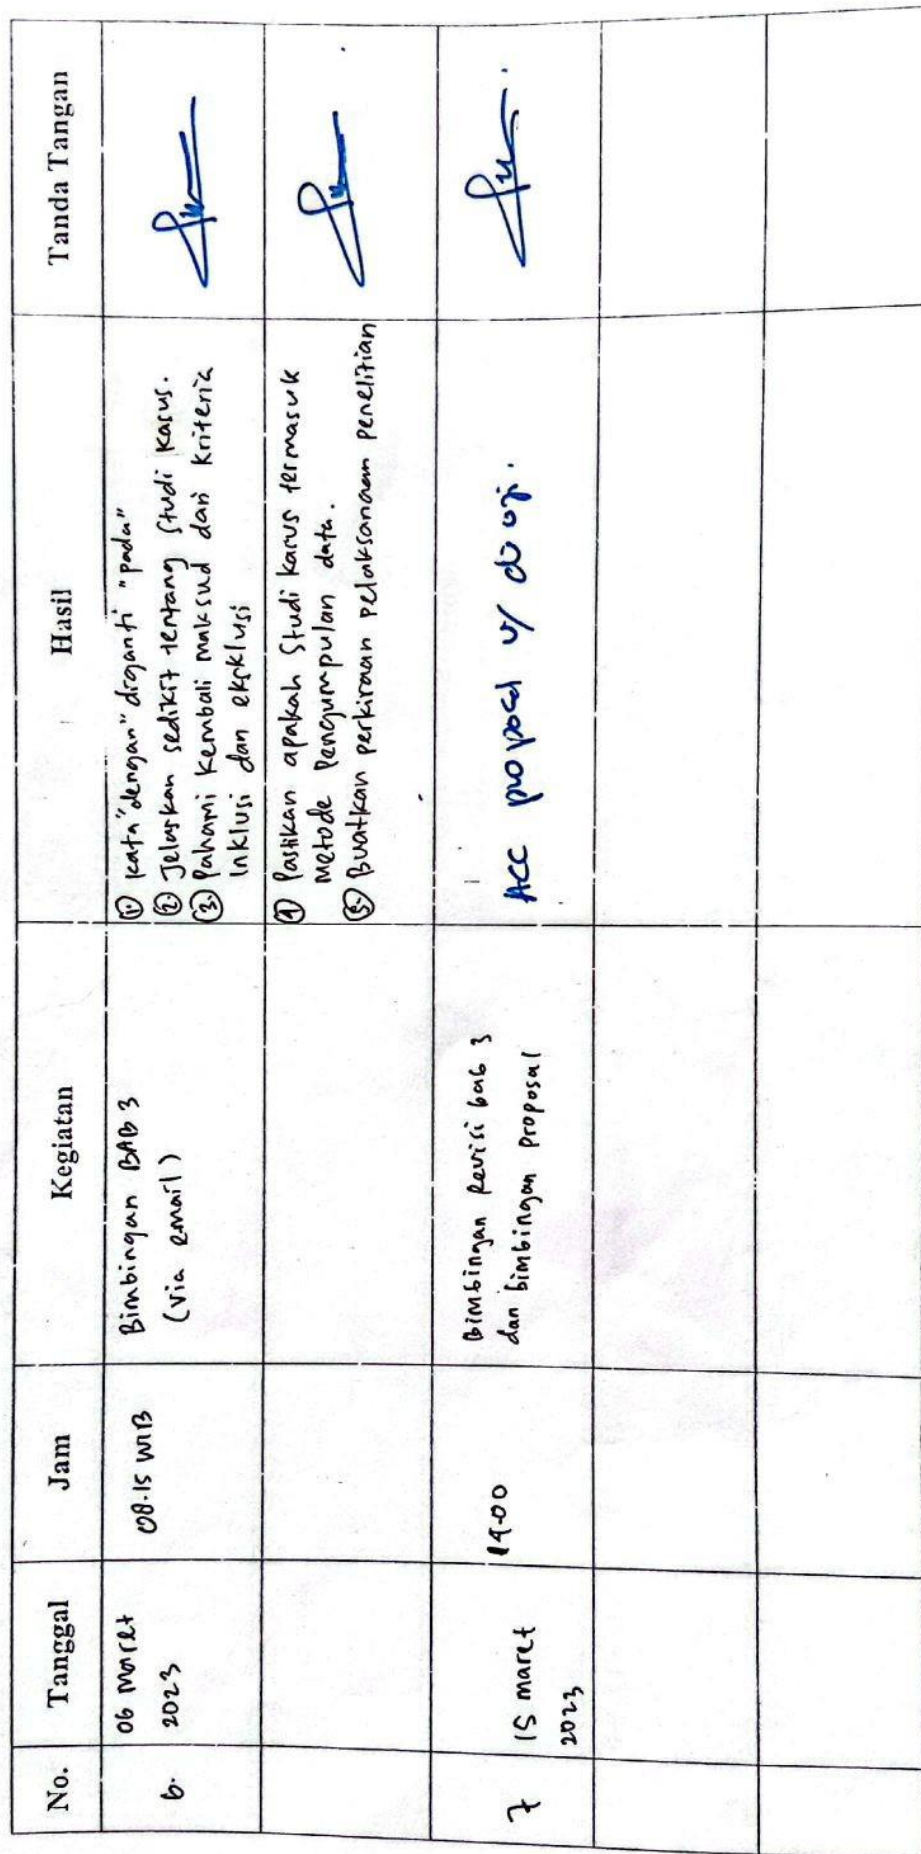 No. Tanggal Jam Kegiatan Hasil Tanda Tangan
6. 06 Maret 08.15 WIB Bimbingan BAB 3 ① Kata "dengan" diganti "pada"
2023 (via email) ② Jelaskan sedikit tentang studi kasus.
③ Pahami kembali maksud dari kriteria
inklusi dan eksklusi
④ Pastikan apakah studi kasus termasuk
metode pengumpulan data.
⑤ Buatkan perkiraan pelaksanaan penelitian
7 15 maret 14.00 Bimbingan Revisi bab 3 ACC proposal u/ di uji.
2023 dan bimbingan proposal